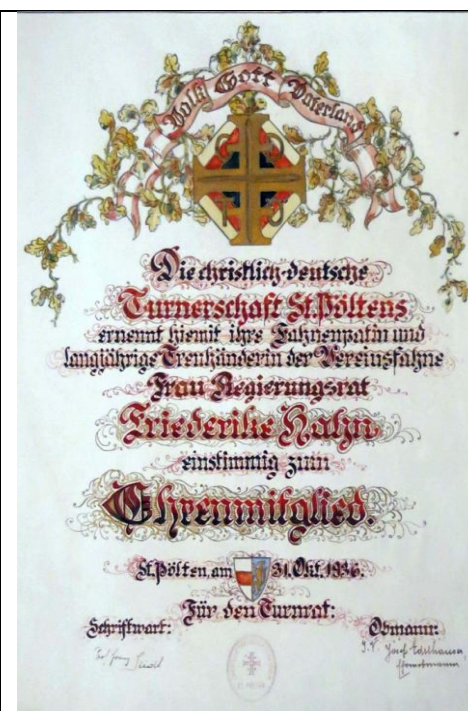 Volk Gott Vaterland
Die christlich-deutsche
Turnerschaft St. Pöltens
ernennt hiemit ihre Fahnenpatin und
langjährige Treuhänderin der Vereinsfahne
Frau Regierungsrat
Friederike Hahn
einstimmig zum
Ehrenmitglied.
St. Pölten, am 31. Okt. 1936.
Für den Turnrat:
Schriftwart: Obmann:
J. V. Josef